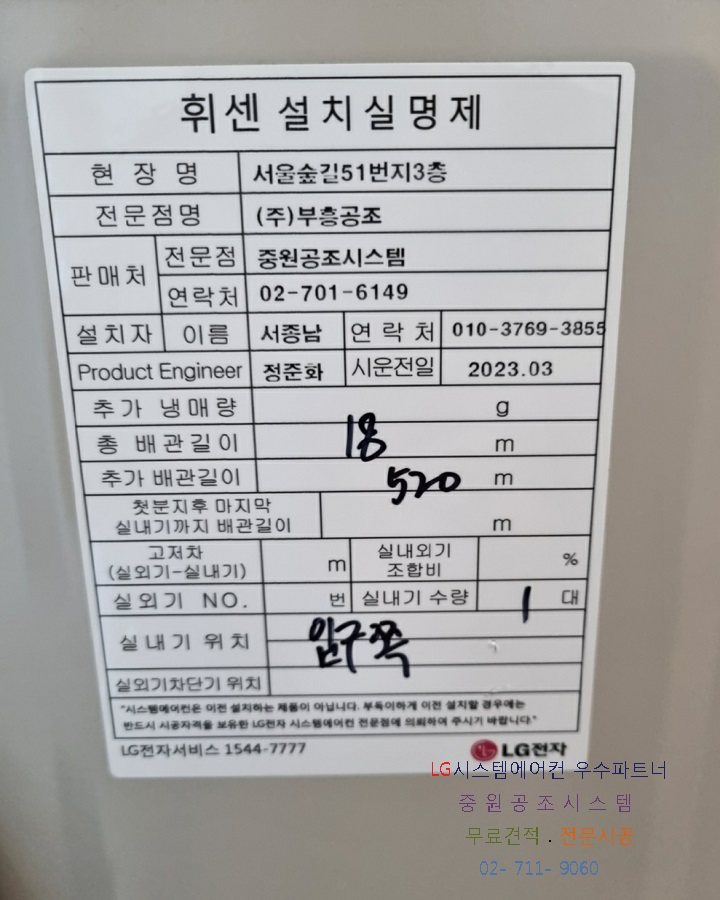 휘센 설치실명제
현 장 명 서울숲길51번지3층
전문점명 (주)부흥공조
판매처 전문점 중원공조시스템
연락처 02-701-6149
설치자 이름 서종남 연 락 처 010-3769-3855
Product Engineer 정준화 시운전일 2023.03
추가 냉매량 g
총 배관길이 18 m
추가 배관길이 520 m
첫분지후 마지막
실내기까지 배관길이 m
고저차
(실외기-실내기) m 실내외기
조합비 %
실외기 NO. 번 실내기 수량 1 대
실내기 위치 입구쪽
실외기차단기 위치
"시스템에어컨은 이전 설치하는 제품이 아닙니다. 부득이하게 이전 설치할 경우에는
반드시 시공자격을 보유한 LG전자 시스템에어컨 전문점에 의뢰하여 주시기 바랍니다."
LG전자서비스 1544-7777 LG전자
LG시스템에어컨 우수파트너
중원공조시스템
무료견적 . 전문시공
02- 711- 9060